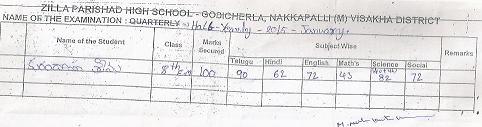 ZILLA PARISHAD HIGH SCHOOL - GODICHERLA, NAKKAPALLI (M) VISAKHA DISTRICT
NAME OF THE EXAMINATION : QUARTERLY - Half-Yearly - 2015 - January.
Name of the Student Class Marks Secured Subject Wise Remarks
Telugu Hindi English Math's Science Social
8th EM 100 90 62 72 43 82 72